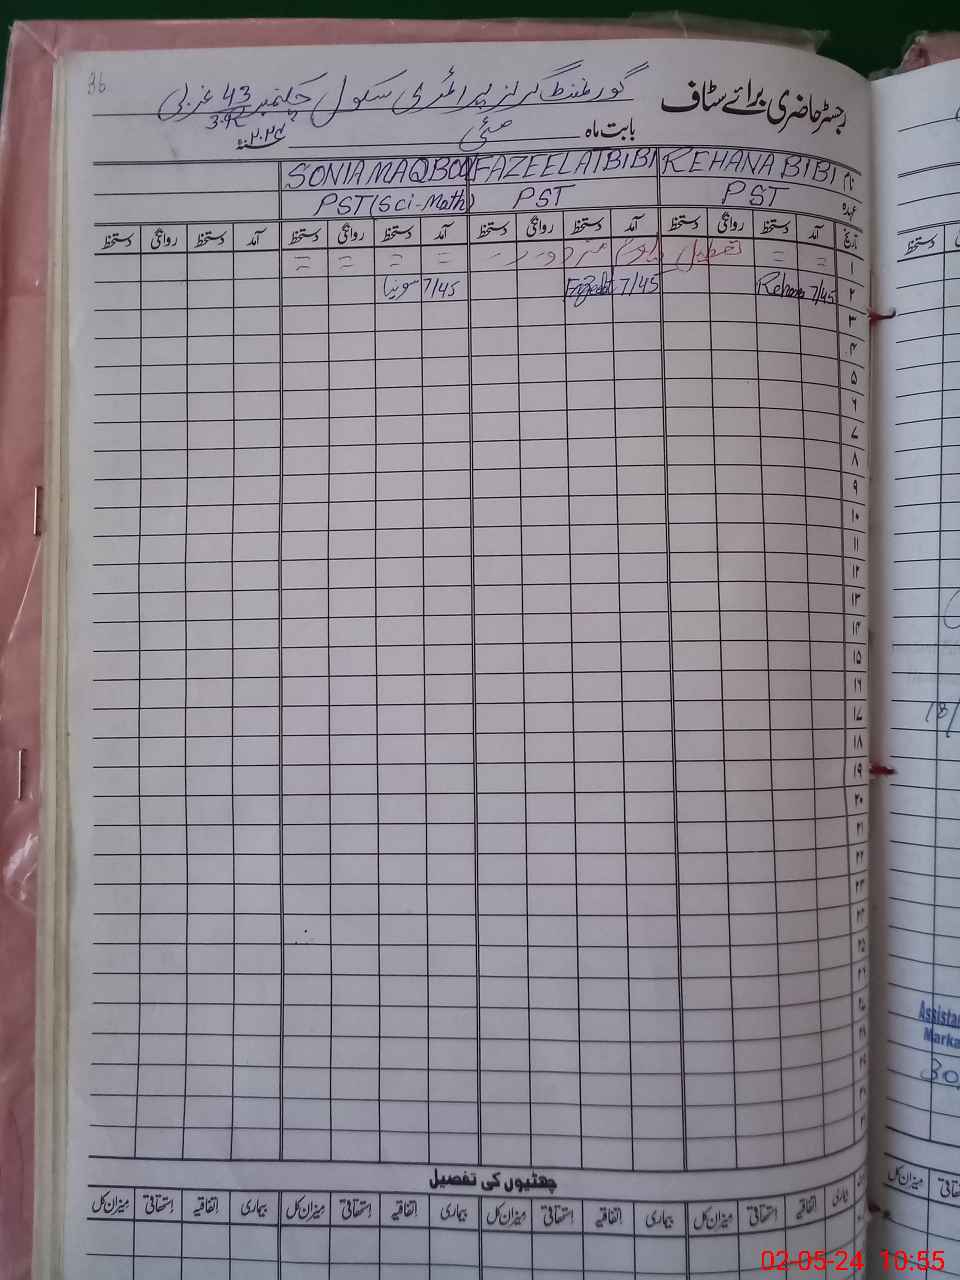 36
رجسٹر حاضری برائے سٹاف گورنمنٹ گرلز پرائمری سکول چکنمبر 43 غربی
بابت ماہ مئی ۲۰۲۴
نام REHANA BIBI FAZEELAT BIBI SONIA MAQBOOL
عہدہ PST PST PST(Sci-Math)
تاریخ آمد دستخط روانگی دستخط آمد دستخط روانگی دستخط آمد دستخط روانگی دستخط آمد دستخط روانگی دستخط
۱ = = تعطیل یوم مزدور = = = =
۲ 7/45 Rehana 7/45 Fazeelat 7/45 سونیا
۳
۴
۵
۶
۷
۸
۹
۱۰
۱۱
۱۲
۱۳
۱۴
۱۵
۱۶
۱۷
۱۸
۱۹
۲۰
۲۱
۲۲
۲۳
۲۴
۲۵
۲۶
۲۷
۲۸
۲۹
۳۰
۳۱
چھٹیوں کی تفصیل
بیماری اتفاقیہ استحقاقی میزان کل بیماری اتفاقیہ استحقاقی میزان کل بیماری اتفاقیہ استحقاقی میزان کل بیماری اتفاقیہ استحقاقی میزان کل
دستخط
18/
Assista
Marka
30
02-05-24 10:55